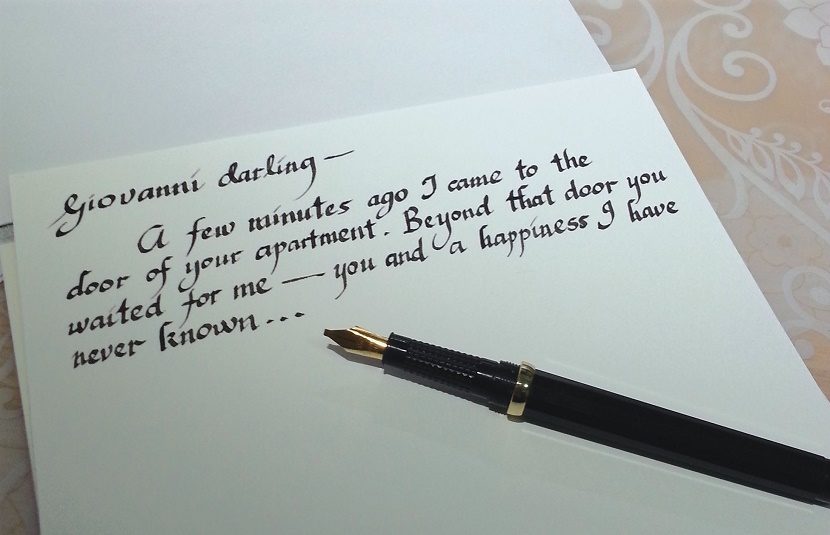 Giovanni darling —
A few minutes ago I came to the
door of your apartment. Beyond that door you
waited for me — you and a happiness I have
never known...